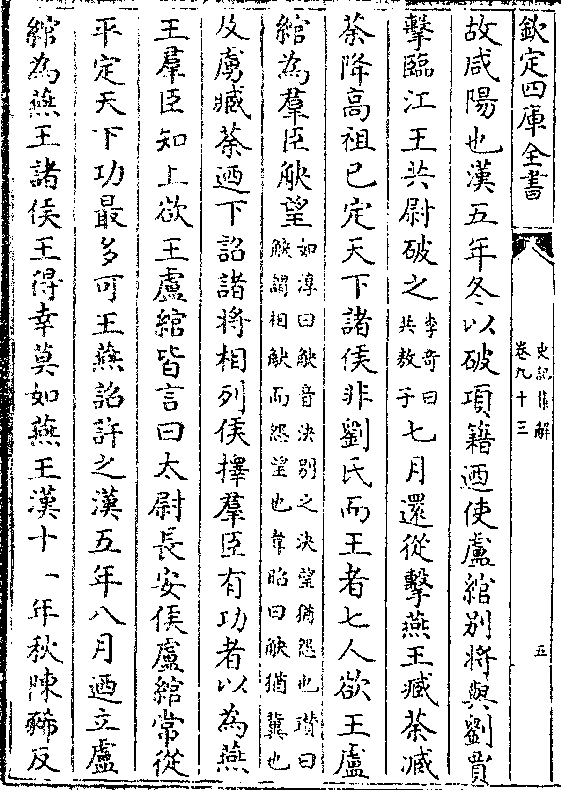 欽定四庫全書
史記集解
卷九十三
五
故咸陽也漢五年冬以破項籍迺使盧綰别將與劉賈
擊臨江王共尉破之李奇曰共敖子七月還從擊燕王臧荼臧
荼降高祖已定天下諸侯非劉氏而王者七人欲王盧
綰為羣臣觖望如淳曰觖音决别之决望猶怨也瓚曰觖謂相觖而怨望也韋昭曰觖猶冀也
及虜臧荼迺下詔諸將相列侯擇羣臣有功者以為燕
王羣臣知上欲王盧綰皆言曰太尉長安侯盧綰常從
平定天下功最多可王燕詔許之漢五年八月迺立盧
綰為燕王諸侯王得幸莫如燕王漢十一年秋陳豨反